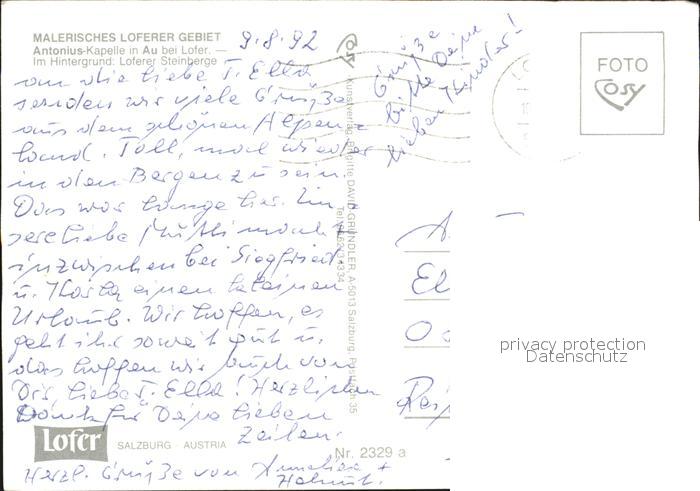 MALERISCHES LOFERER GEBIET
Antonius-Kapelle in Au bei Lofer. —
Im Hintergrund: Loferer Steinberge
9.8.92
an die liebe T. Ella
senden wir viele Grüße
aus dem schönen Alpen-
land. Toll, mal wieder
in den Bergen zu sein.
Das war lange her. Un
sere liebe Mutti macht
inzwischen bei Siegfried
u. einen kleinen
Urlaub. Wir hoffen, es
geht ihr soweit gut u.
das hoffen wir auch von
Dir, liebe T. Ella! Herzlichen
Dank für Deine lieben
Zeilen.
Herzl. Grüße von Annelies +
Helmut.
Grüße
bitte Deine
lieben Kinder!
Cosy
Kunstverlag Brigitte DAVID-GRÜNDLER, A-5013 Salzburg, Postfach 35
FOTO
Cosy
A.
El
O
privacy protection
Datenschutz
Lofer
SALZBURG · AUSTRIA
Nr. 2329 a